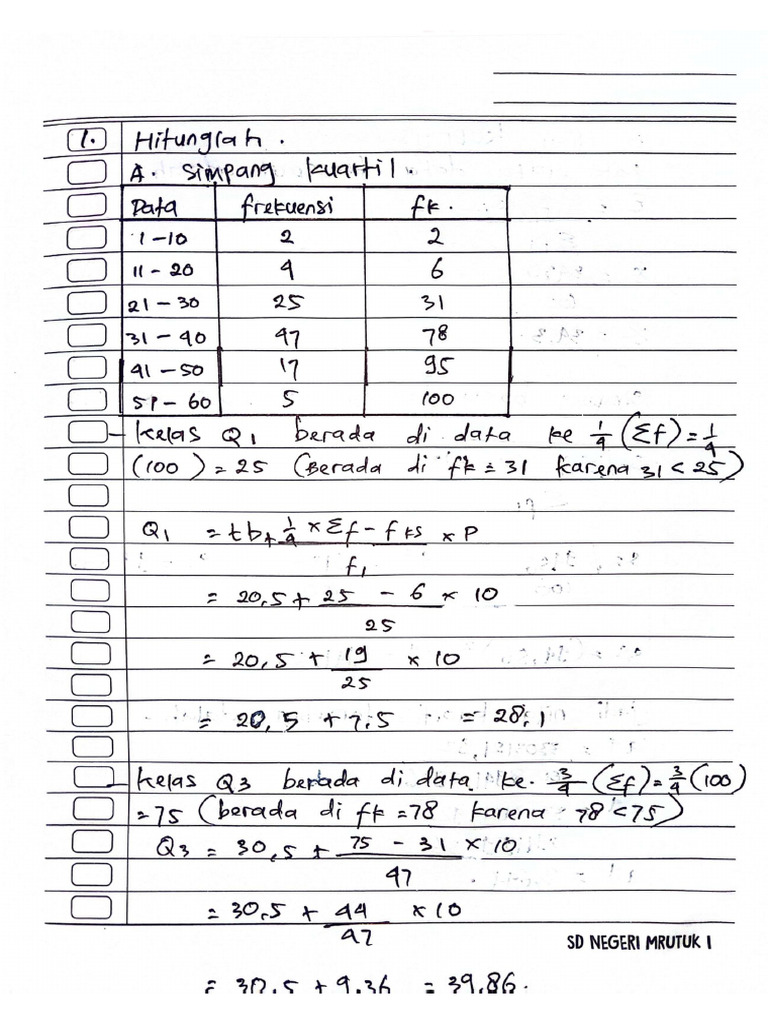 1. Hitunglah.
A. Simpang kuartil.
Data frekuensi fk.
1-10 2 2
11-20 4 6
21-30 25 31
31-40 47 78
41-50 17 95
51-60 5 100
- kelas Q1 berada di data ke 1/4 (Σf) = 1/4
(100) = 25 (Berada di fk = 31 karena 31 < 25)
Q1 = tb + 1/4 × Σf - fks × P
f1
= 20,5 + 25 - 6 × 10
25
= 20,5 + 19 × 10
25
= 20,5 + 7,5 = 28,1
- kelas Q3 berada di data ke. 3/4 (Σf) = 3/4 (100)
= 75 (berada di fk = 78 karena 78 < 75)
Q3 = 30,5 + 75 - 31 × 10
47
= 30,5 + 44 × 10
47
SD NEGERI MRUTUK 1
= 30,5 + 9,36 = 39,86.